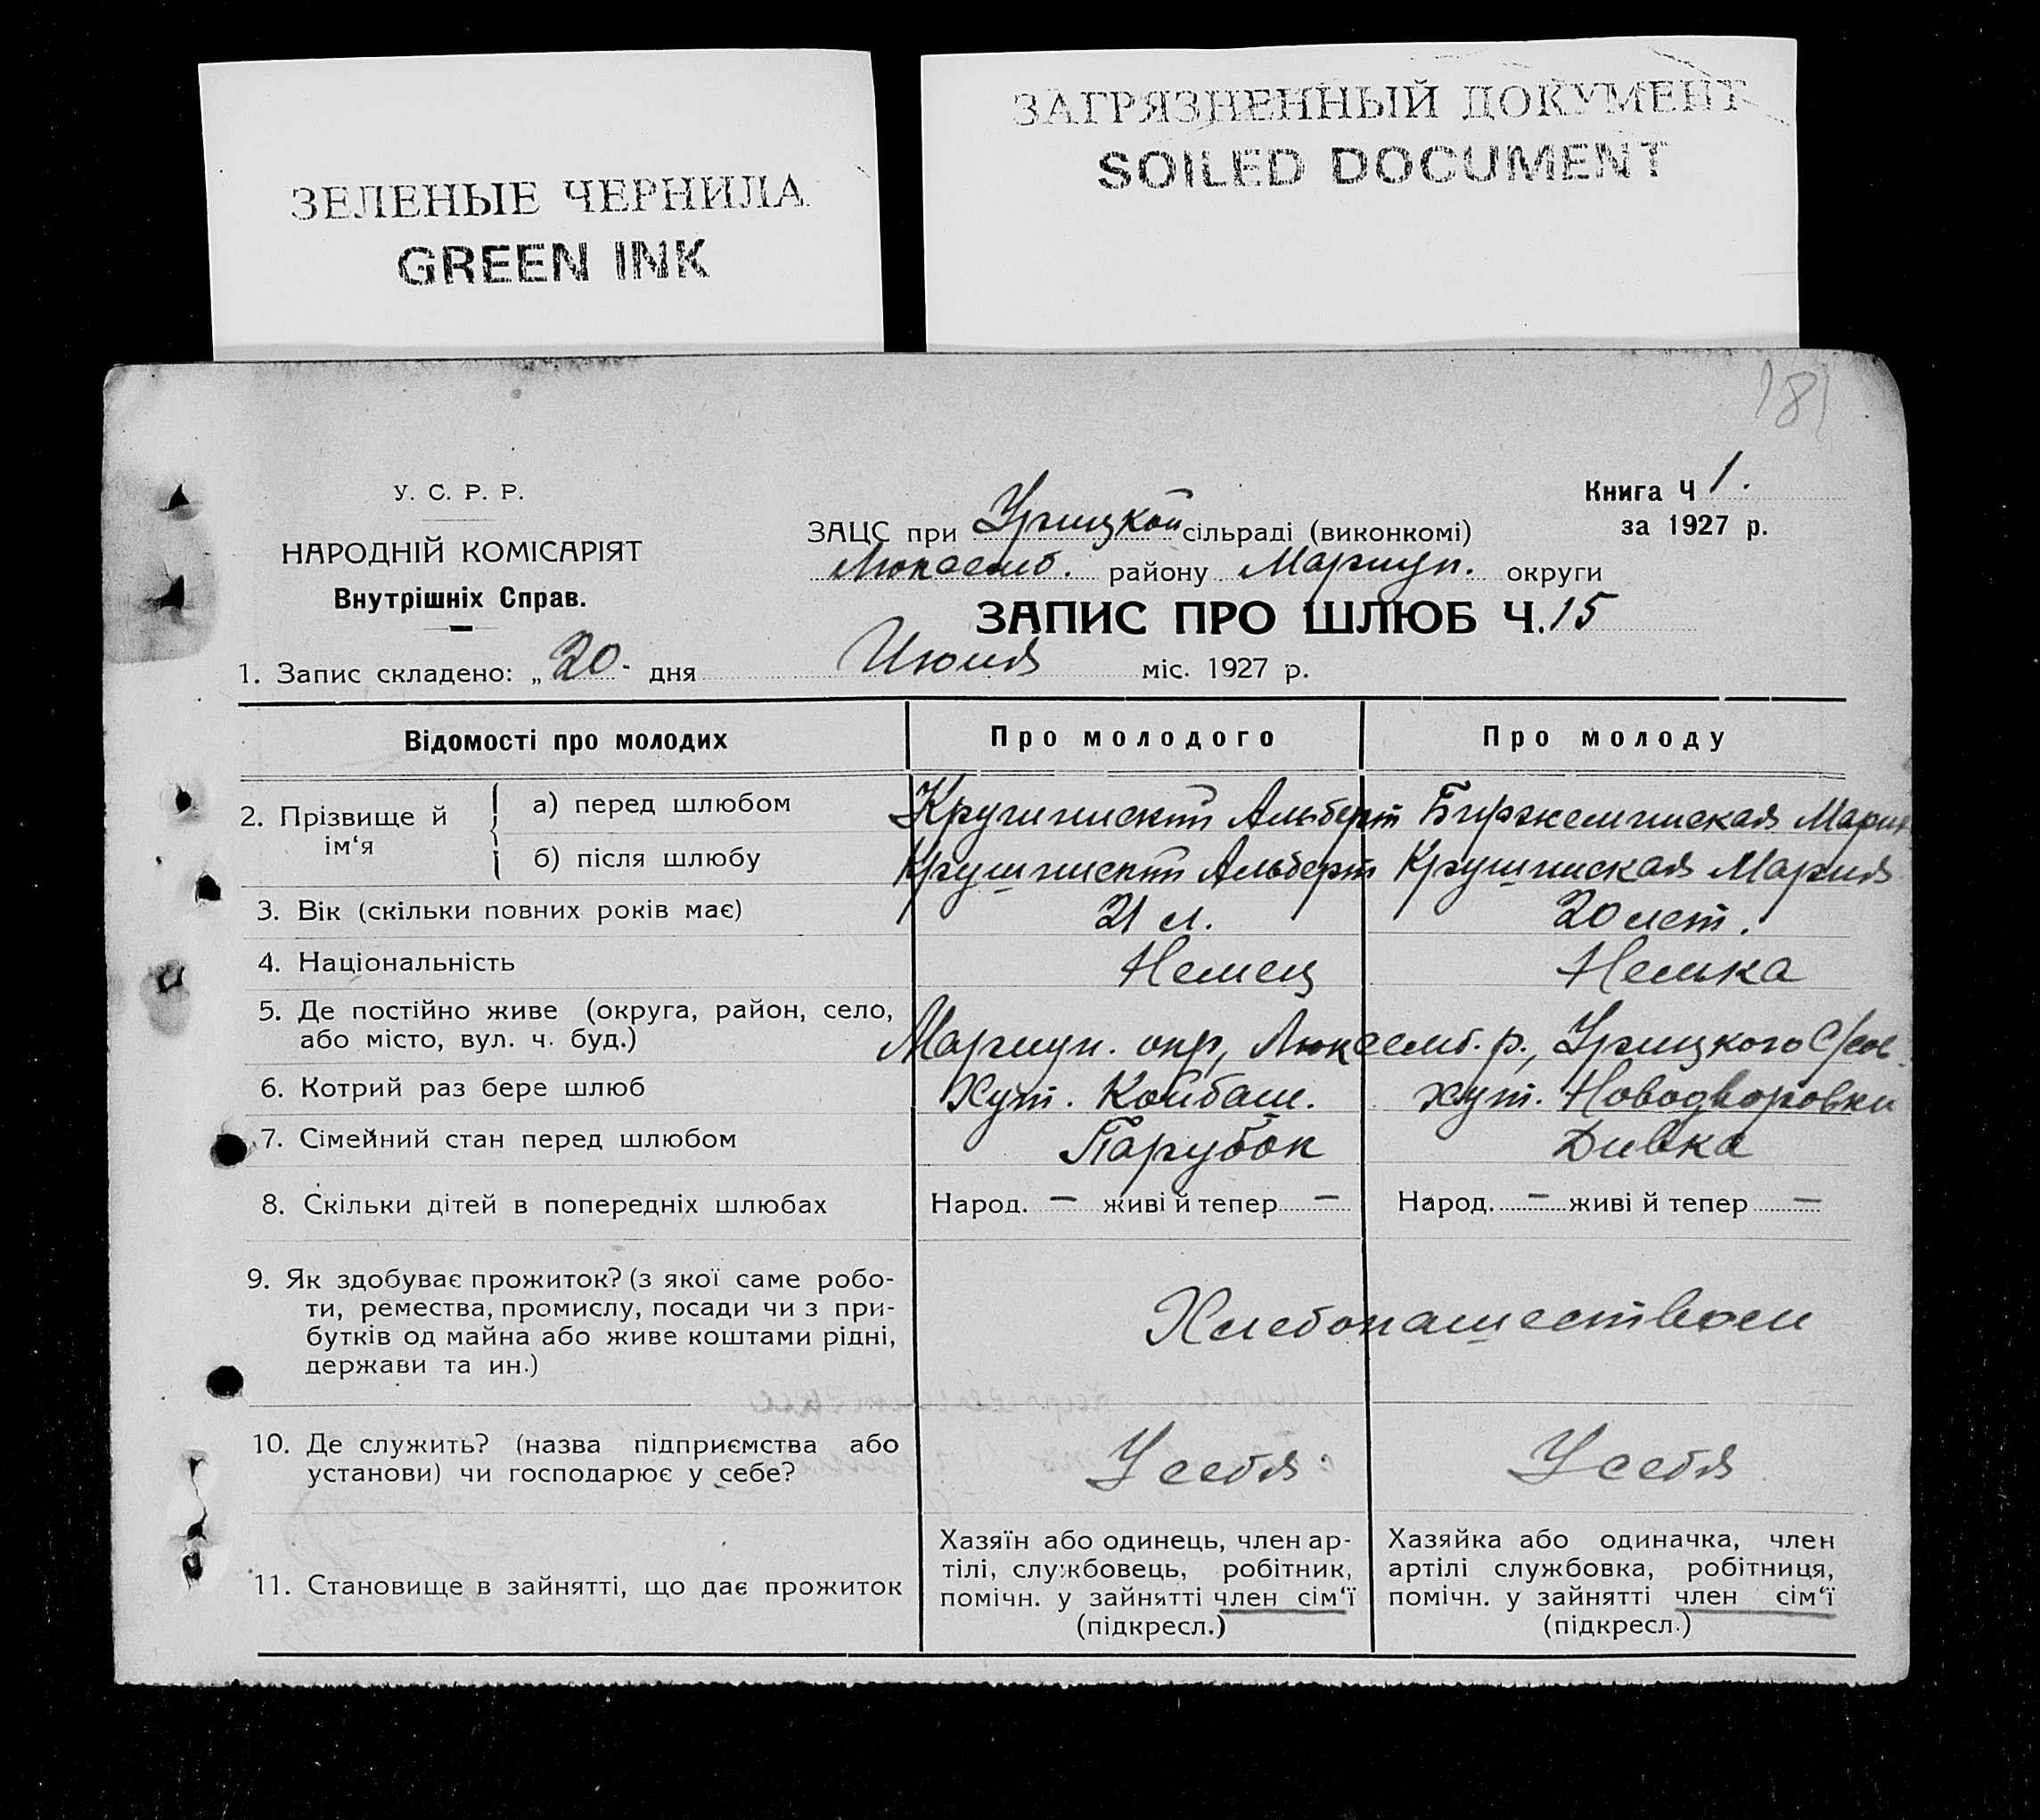 ЗЕЛЕНЫЕ ЧЕРНИЛА
GREEN INK
ЗАГРЯЗНЕННЫЙ ДОКУМЕНТ
SOILED DOCUMENT
181
У. С. Р. Р.
НАРОДНІЙ КОМІСАРІЯТ
Внутрішніх Справ.
Книга Ч 1.
за 1927 р.
ЗАЦС при Урицкой сільраді (виконкомі)
Люксемб. району Мариуп. округи
ЗАПИС ПРО ШЛЮБ Ч. 15
1. Запис складено: „ 20 - дня Июня міс. 1927 р.
Відомості про молодих Про молодого Про молоду
2. Прізвище й ім‘я
а) перед шлюбом Крушинский Альберт Мария
б) після шлюбу Крушинский Альберт Крушинская Мария
3. Вік (скільки повних років має) 21 л. 20 лет.
4. Національність Немец Немка
5. Де постійно живе (округа, район, село,
або місто, вул. ч. буд.) Мариуп. окр, Люксемб. р., Урицкого С/сов
6. Котрий раз бере шлюб Хут. Койбаш. хут. Новодворовки
7. Сімейний стан перед шлюбом Парубок Дивка
8. Скільки дітей в попередніх шлюбах Народ. — живі й тепер — Народ. — живі й тепер —
9. Як здобуває прожиток? (з якої саме робо-
ти, ремества, промислу, посади чи з при-
бутків од майна або живе коштами рідні,
держави та ин.)
Хлебопашеством
10. Де служить? (назва підприємства або
установи) чи господарює у себе?
У себя У себя
11. Становище в зайнятті, що дає прожиток
Хазяїн або одинець, член ар-
тілі, службовець, робітник,
помічн. у зайнятті член сім‘ї
(підкресл.)
Хазяйка або одиначка, член
артілі службовка, робітниця,
помічн. у зайнятті член сім‘ї
(підкресл.)